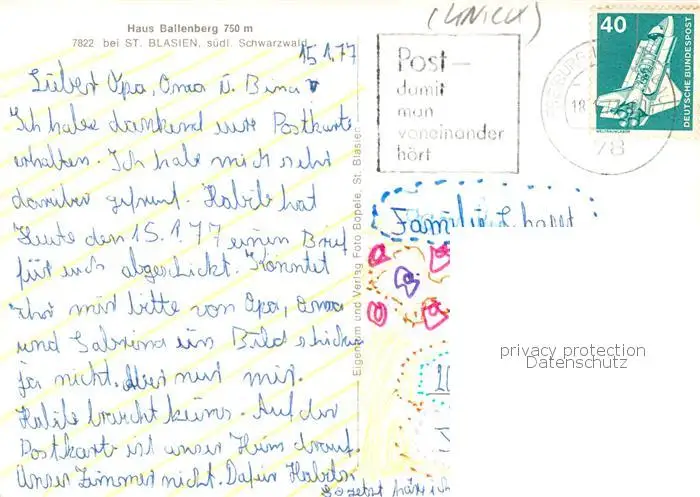 Haus Ballenberg 750 m
7822 bei ST. BLASIEN, südl. Schwarzwald
15.1.77
Liebert Opa, Oma u. Bina
Ich habe dankend eure Postkarte
erhalten. Ich habe mich sehr
darüber gefreut. Habile hat
Heute den 15.1.77 einen Brief
für euch abgeschickt. Könntet
ihr mir bitte von Opa, Oma
und Sabrina ein Bild schicken
ja nicht. Aber nur mir.
Habile braucht keins. Auf der
Postkarte ist unser Heim drauf.
Unser Zimmer nicht. Dafür
So jetzt
Eigentum und Verlag Foto Bopele, St. Blasien
Post-
damit
man
voneinander
hört
FREIBURG
18.
78
40
DEUTSCHE BUNDESPOST
WELTRAUMLABOR
Familie
privacy protection
Datenschutz